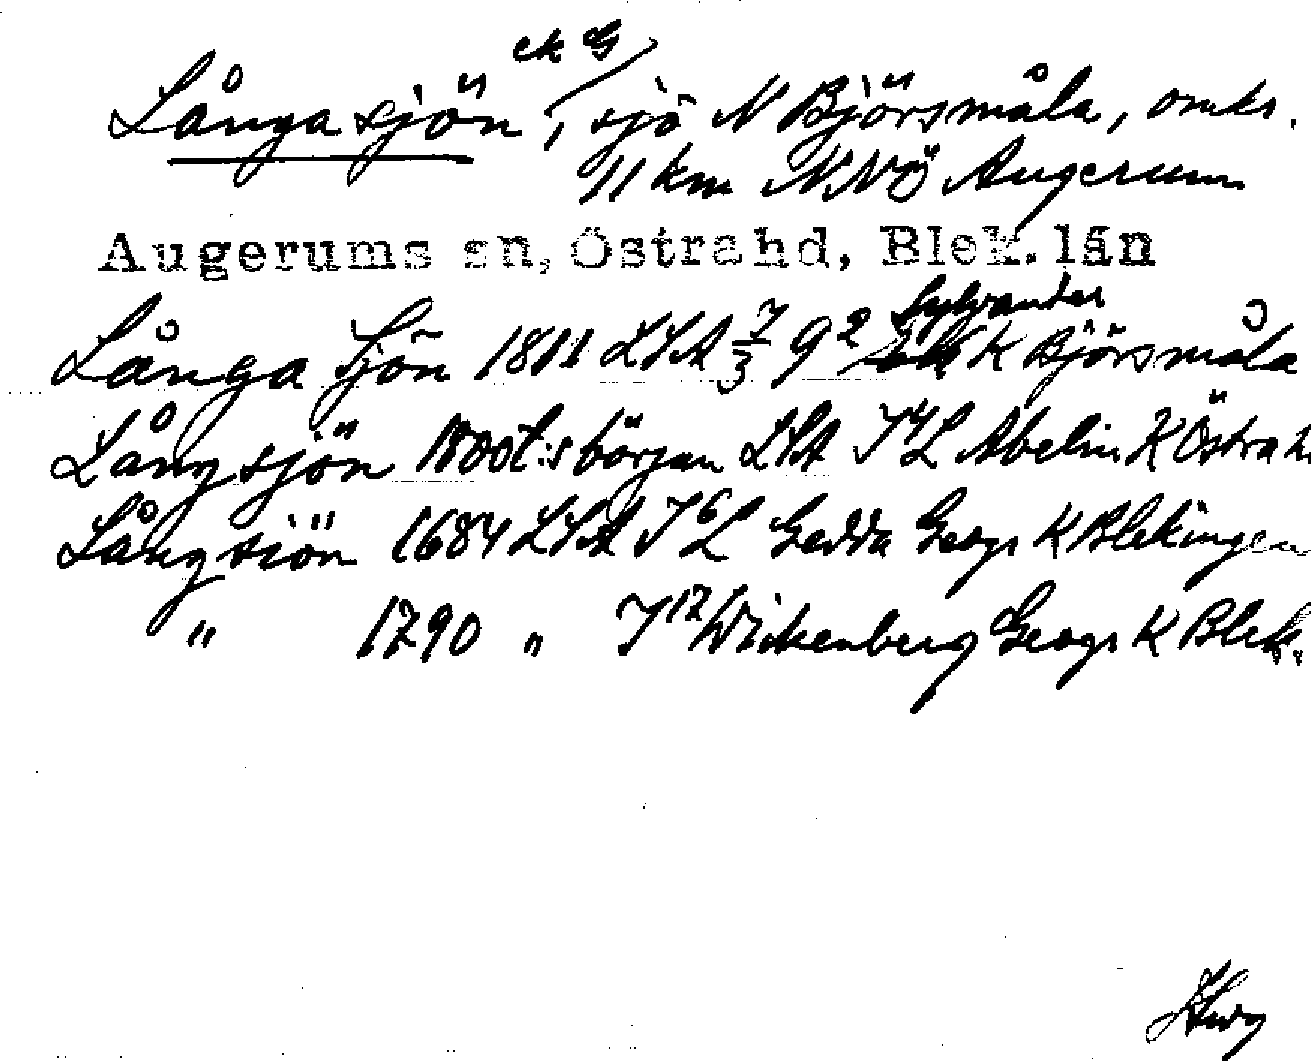 ek G
Långasjön, sjö N Björsmåla, omkr.
11 km NNÖ Augerum
Augerums sn, Östrahd, Blek. län
Sylvander
Långa Sjön 1811 LSA 7/3 9² K Björsmåla
Långsjön 1800t:s början LSA J⁴L Abelin K Östrah
Långsiön 1684 LSA J⁶L Gedda Geogr K Blekingen
" 1790 " J¹² Wickenberg Geogr K Blek.